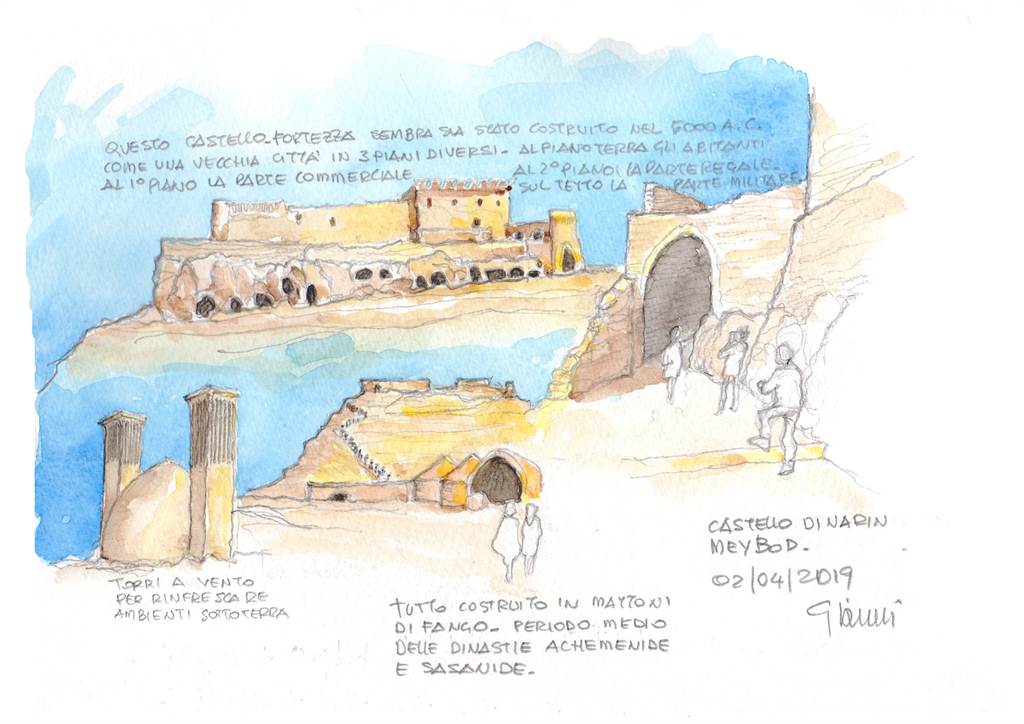 QUESTO CASTELLO-FORTEZZA SEMBRA SIA STATO COSTRUITO NEL 5000 A.C.
COME UNA VECCHIA CITTA' IN 3 PIANI DIVERSI - AL PIANO TERRA GLI ABITANTI
AL 1° PIANO LA PARTE COMMERCIALE AL 2° PIANO LA PARTE REGALE -
SUL TETTO LA PARTE MILITARE
TORRI A VENTO
PER RINFRESCARE
AMBIENTI SOTTOTERRA
TUTTO COSTRUITO IN MATTONI
DI FANGO - PERIODO MEDIO
DELLE DINASTIE ACHEMENIDE
E SASANIDE -
CASTELLO DI NARIN
MEYBOD -
02/04/2019
Gianni